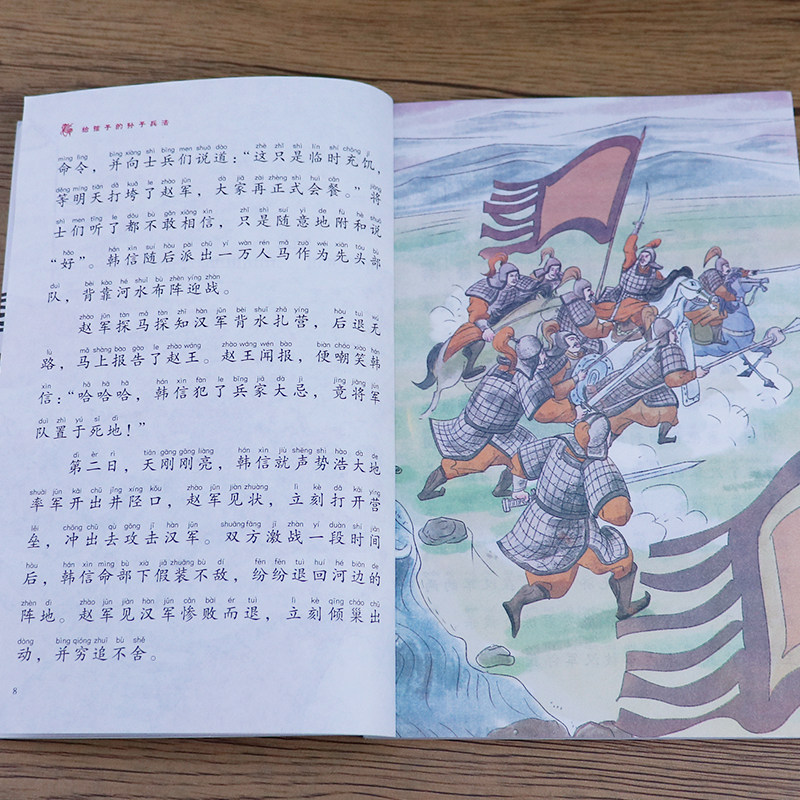 给孩子的孙子兵法
mìng lìng bìng xiàng shì bīng men shuō dào zhè zhǐ shì lín shí chōng jī
命令，并向士兵们说道：“这只是临时充饥，
děng míng tiān dǎ kuǎ le zhào jūn dà jiā zài zhèng shì huì cān jiàng
等明天打垮了赵军，大家再正式会餐。”将
shì men tīng le dōu bù gǎn xiāng xìn zhǐ shì suí yì de fù hè shuō
士们听了都不敢相信，只是随意地附和说
hǎo hán xìn suí hòu pài chū yí wàn rén mǎ zuò wéi xiān tóu bù
“好”。韩信随后派出一万人马作为先头部
duì bèi kào hé shuǐ bù zhèn yíng zhàn
队，背靠河水布阵迎战。
zhào jūn tàn mǎ tàn zhī hàn jūn bèi shuǐ zhā yíng hòu tuì wú
赵军探马探知汉军背水扎营，后退无
lù mǎ shàng bào gào le zhào wáng zhào wáng wén bào biàn cháo xiào hán
路，马上报告了赵王。赵王闻报，便嘲笑韩
xìn hā hā hā hán xìn fàn le bīng jiā dà jì jìng jiāng jūn
信：“哈哈哈，韩信犯了兵家大忌，竟将军
duì zhì yú sǐ dì
队置于死地！”
dì èr rì tiān gāng gāng liàng hán xìn jiù shēng shì hào dà de
第二日，天刚刚亮，韩信就声势浩大地
shuài jūn kāi chū jǐng xíng kǒu zhào jūn jiàn zhuàng lì kè dǎ kāi yíng
率军开出井陉口，赵军见状，立刻打开营
lěi chōng chū qù gōng jī hàn jūn shuāng fāng jī zhàn yí duàn shí jiān
垒，冲出去攻击汉军。双方激战一段时间
hòu hán xìn mìng bù xià jiǎ zhuāng bù dí fēn fēn tuì huí hé biān de
后，韩信命部下假装不敌，纷纷退回河边的
zhèn dì zhào jūn jiàn hàn jūn cǎn bài ér tuì lì kè qīng cháo chū
阵地。赵军见汉军惨败而退，立刻倾巢出
dòng bìng qióng zhuī bù shě
动，并穷追不舍。
8